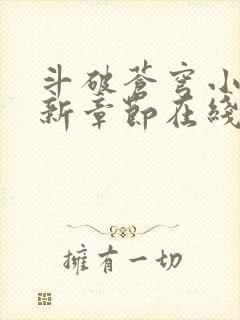 斗破蒼穹小
新章節在綫
擁有一切